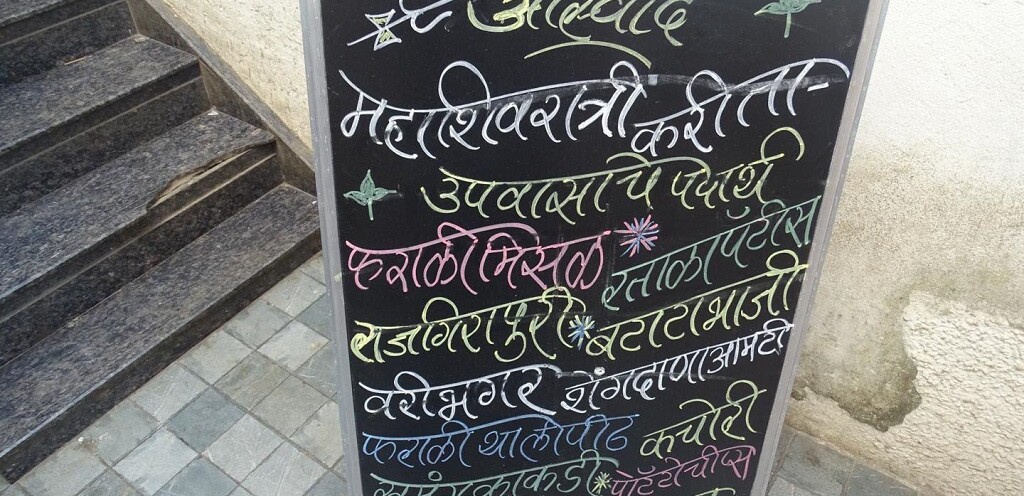 आस्वाद
महाशिवरात्री करीता-
उपवासाचे पदार्थ
फराळी मिसळ * रताळा पॅटीस
राजगिरा पुरी * बटाटा भाजी
वरी भगर शेंगदाणा आमटी
फराळी थालीपीठ कचोरी
* पोटॅटो चीप्स